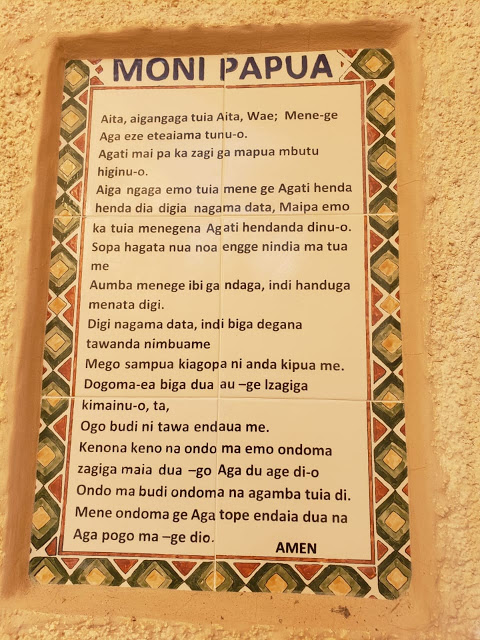 MONI PAPUA
Aita, aigangaga tuia Aita, Wae; Mene-ge
Aga eze eteaiama tunu-o.
Agati mai pa ka zagi ga mapua mbutu
higinu-o.
Aiga ngaga emo tuia mene ge Agati henda
henda dia digia nagama data, Maipa emo
ka tuia menegena Agati hendanda dinu-o.
Sopa hagata nua noa engge nindia ma tua
me
Aumba menege ibi ga ndaga, indi handuga
menata digi.
Digi nagama data, indi biga degana
tawanda nimbuame
Mego sampua kiagopa ni anda kipua me.
Dogoma-ea biga dua au –ge Izagiga
kimainu-o, ta,
Ogo budi ni tawa endaua me.
Kenona keno na ondo ma emo ondoma
zagiga maia dua –go Aga du age di-o
Ondo ma budi ondoma na agamba tuia di.
Mene ondoma ge Aga tope endaia dua na
Aga pogo ma –ge dio.
AMEN